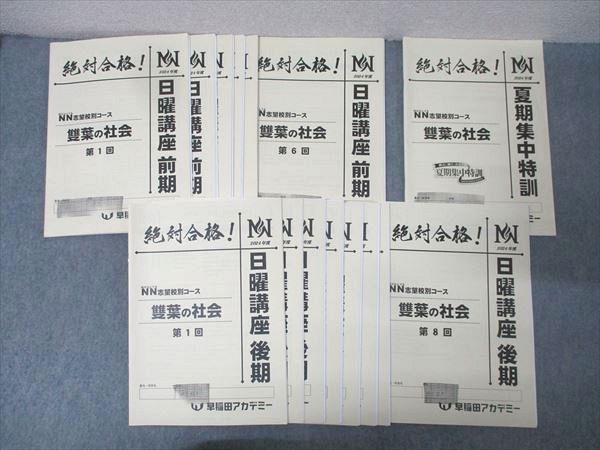 絶対合格!
2024年度
日曜講座 前期
NN志望校別コース
雙葉の社会
第1回
早稲田アカデミー
2024年度
日曜講座 前期
絶対合格!
2024年度
日曜講座 前期
NN志望校別コース
雙葉の社会
第6回
絶対合格!
2024年度
夏期集中特訓
NN志望校別コース
雙葉の社会
夏期集中特訓
早稲田アカデミー
絶対合格!
2024年度
日曜講座 後期
NN志望校別コース
雙葉の社会
第1回
早稲田アカデミー
絶対合格!
2024年度
日曜講座 後期
NN志望校別コース
雙葉の社会
第8回
早稲田アカデミー